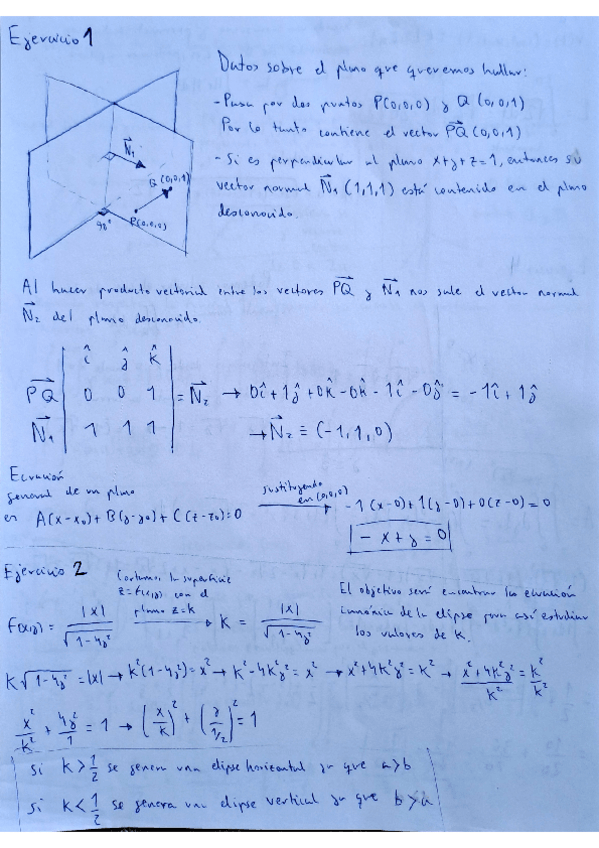 Ejercicio 1
Datos sobre el plano que queremos hallar:
- Pasa por dos puntos P(0,0,0) y Q (0,0,1)
Por lo tanto contiene el vector PQ⃗ (0,0,1)
- Si es perpendicular al plano x+y+z=1, entonces su
vector normal N⃗₁ (1,1,1) está contenido en el plano
desconocido.
N⃗₁
Q (0,0,1)
P(0,0,0)
90°
Al hacer producto vectorial entre los vectores PQ⃗ y N⃗₁ nos sale el vector normal
N⃗₂ del plano desconocido.
î ĵ k̂
PQ⃗ | 0 0 1 | = N⃗₂ → 0î + 1ĵ + 0k̂ - 0k̂ - 1î - 0ĵ = -1î + 1ĵ
N⃗₁ | 1 1 1 | → N⃗₂ ≡ (-1,1,0)
Ecuación
general de un plano
es A(x-x₀)+B(y-y₀)+C(z-z₀)=0 sustituyendo en (0,0,0) → -1(x-0)+1(y-0)+0(z-0)=0
-x+y=0
Ejercicio 2
Cortamos la superficie
z=f(x,y) con el
plano z=k
El objetivo será encontrar la ecuación
canónica de la elipse para así estudiar
los valores de k.
F(x,y) = |x|/√(1-4y²) → k = |x|/√(1-4y²)
k√(1-4y²) = |x| → k²(1-4y²) = x² → k²-4k²y² = x² → x²+4k²y² = k² → (x²+4k²y²)/k² = k²/k²
x²/k² + 4y²/1 = 1 → (x/k)² + (y/1/2)² = 1
Si k > 1/2 se genera una elipse horizontal ya que a>b
Si k < 1/2 se genera una elipse vertical ya que b>a